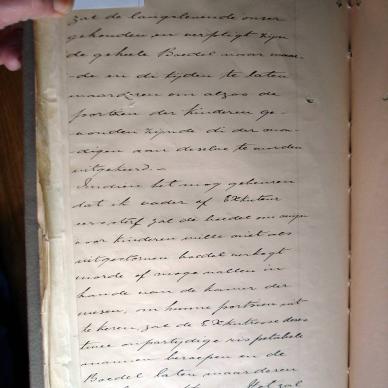 zal de langstlevende onser
gehouden en verpligt zijn
de geheele Boedel maar waar-
de en de tijden te laten
waardeeren om alzoo de
portien der kinderen ge-
vonden zijnde di der mon-
digen aan deselve te worden
uitgekeerd. _
Indien het mog gebeuren
dat ik vader of Exkuteur
eers sterf zal de boedel om myn
voor kinderen wille niet als
uitgestorven boedel verkogt
worde of moge vallen in
hande van de kamer der
wesen, om hunne portsoen uit
te keren, zal de Exkutrise deses
twee onpartydige rispektabele
mannen beroepen en de
Boedel laten waardeeren
zal